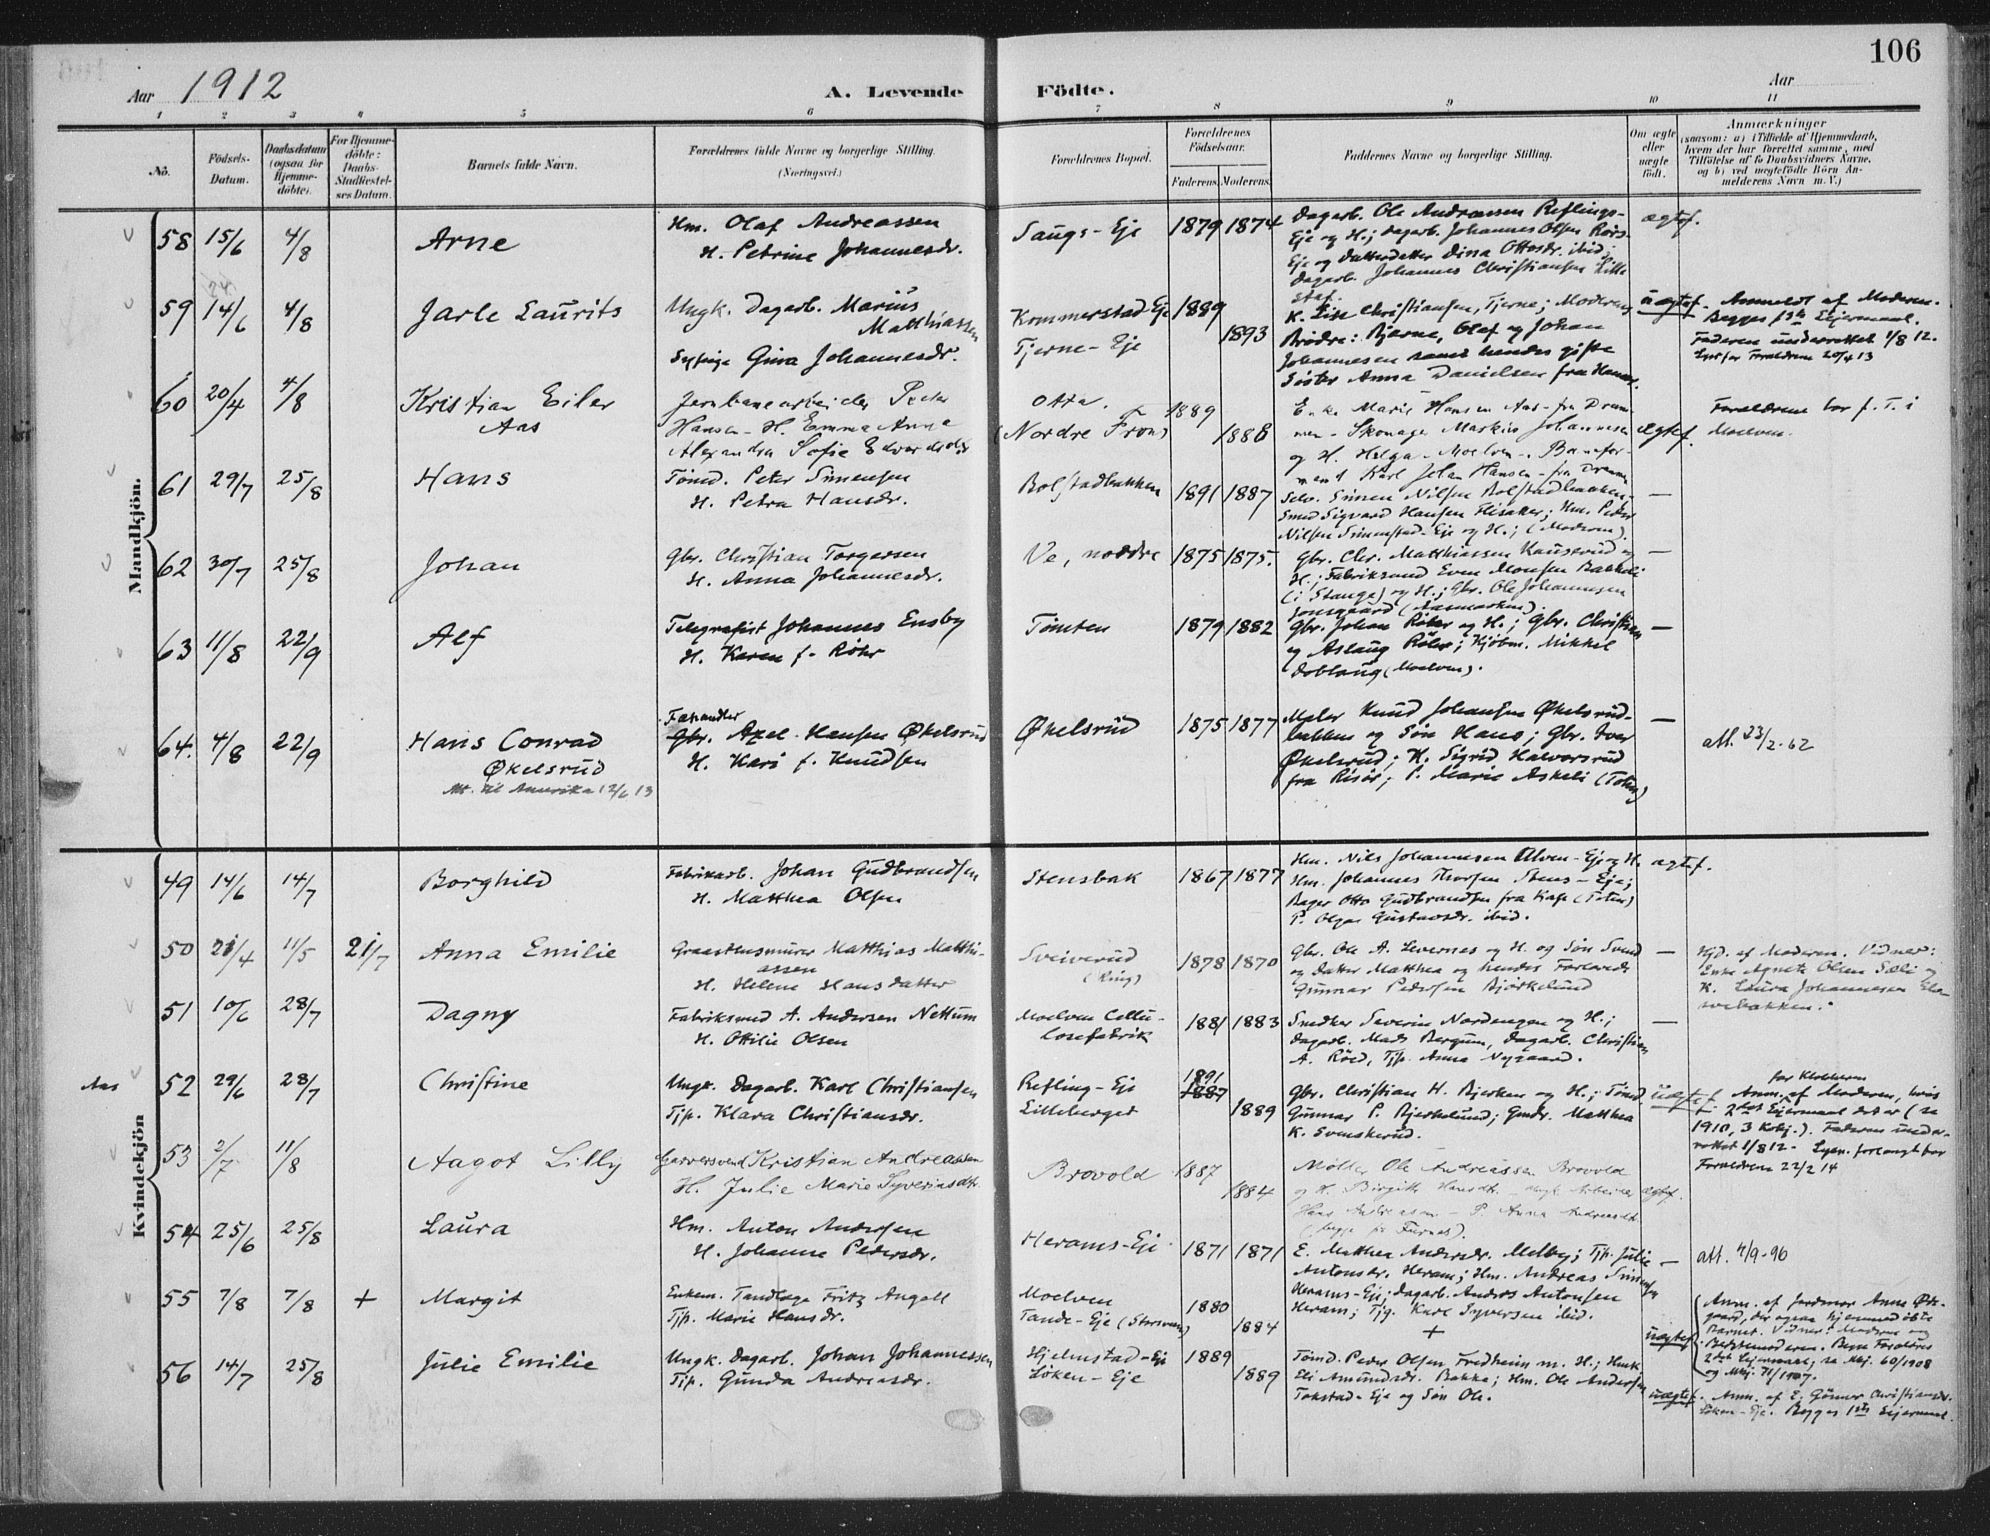 106
Aar 1912
A. Levende Födte.
Aar
1 2 3 4 5 6 7 8 9 10 11
No.
Födsels-Datum.
Daabsdatum (ogsaa for Hjemmedöbte).
For Hjemmedöbte: Daabs-Stadfæstelses Datum.
Barnets fulde Navn.
Forældrenes fulde Navne og borgerlige Stilling. (Næringsvei.)
Forældrenes Bopæl.
Forældrenes Födselsaar.
Faderens. Moderens.
Faddernes Navne og borgerlige Stilling.
Om ægte eller uægte födt.
Anmærkninger
(saasom: a) i Tilfælde af Hjemmedaab, hvem der har forrettet samme, med Tilföielse af to Daabsvidners Navne, og b) ved uægtefödte Börn Anmelderens Navn m. V.)
Mandkjön.
58 15/6 4/8 Arne
Hm. Olaf Andreassen
H. Petrine Johannesdr.
Saugs-Eje 1879 1874
Dagarb. Ole Andreassen Reflings-
Eje og H.; Dagarb. Johannes Olsen Røis-
Eje og Datterdatter Dina Ottosdr. ibid;
Dagarb. Johannes Christiansen
ægtef.
59 14/6 4/8 Jarle Laurits
Ungk. Dagarb. Marius
Matthiassen
Gina Johannesdr.
Kommerstad Eje 1889
Tjerne-Eje 1893
K. Lise Christiansen, Tjerne; Moderens
Brødre: Bjarne, Olaf og Johan
Johannesen samt hendes gifte
Søster Anna Danielsen fra Hamar.
uægtef. Anmeldt af Moderen.
Begges 1ste Leiermaal.
Faderen underrettet 1/8 12.
Lyst for Forældrene 20/4 13
60 20/4 4/8 Kristian Eiler
Aas
Jernbanearbeider Peder
Hansen - H. Emma Anna
Alexandra Sofie Edvardsdtr
Otta. 1889
(Nordre Fron) 1888
Enke Marie Hansen Aas - fra Dram-
men - Skomager Markus Johannesen
og H. Helga - Moelven -. Banefor-
mand Karl Johan Hansen - fra Dramm.
ægtef.
Forældrene bor f. T. i
Moelven.
61 29/7 25/8 Hans
Tømd. Peter Simensen
H. Petra Hansdr.
Bolstadbakken 1891 1887
Selv. Simen Nilsen Bolstadbakken-
Smed Sigvard Hansen Flisaker; Hm. Peder
Nilsen Simenstad-Eje og H.; (Moderen).
—
62 30/7 25/8 Johan
Gbr. Christian Torgersen
H. Anna Johannesdr.
Ve, nordre 1875 1875.
Gbr. Chr. Matthiassen Kauserud og
H.; Fabriksmd Even Monsen Bakkeli
(i Stange) og H.; Gbr. Ole Johannesen
Jonsgaard (Aasmarken).
—
63 11/8 22/9 Alf
Telegrafist Johannes Ensby
H. Karen f. Röhr
Tomten 1879 1882
Gbr. Johan Röhr og H.; Gbr. Christian
og Aslaug Röhr; Kjöbm. Mikkel
Doblaug (Moelven).
—
64. 4/8 22/9 Hans Conrad
Økelsrud
Att. til Amerika 12/6 13
Fæhandler
Gbr. Axel Hansen Økelsrud
H. Kari f. Knudsen
Økelsrud 1875 1877
Maler Knud Johansen Økelsrud-
bakken og Søn Hans; Gbr. Iver
Økelsrud; H. Sigrid Halvorsrud
fra Risör; P. Marie Askeli (Toten)
—
att. 23/2-62
Kvindekjön
49 14/6 14/7 Borghild
Fabrikarb. Johan Gudbrandsen
H. Matthea Olsen
Stensbak 1867 1877
Hm. Nils Johannesen Alven-Eje og H.
Hm. Johannes Thorsen Stens-Eje;
Bager Otto Gudbrandsen fra Kap (Toten)
P. Olga Gustavsdr. ibid.
ægtef.
50 21/4 11/5 21/7 Anna Emilie
Graastensmurer Matthias Matthi-
assen
H. Helene Hansdatter
Sveiverud
(Ring) 1878 1870
Gbr. Ole A. Levernes og H. og Søn Svend
og Datter Matthea og hendes Forlovede
Gunnar Pedersen Bjørkelund
—
Hjd. af Moderen. Vidner:
Enke Agnete Olsen Sæli og
K. Laura Johannesen
51 10/6 28/7 Dagny
Fabriksmd A. Andersen Nettum
H. Ottilie Olsen
Moelven Cellu-
losefabrik 1881 1883
Snedker Severin Nordengen og H.;
Dagarb. Mads Bergum, Dagarb. Christian
A. Röed, Tjp. Anna Nygaard.
—
Aas
52 29/6 28/7 Christine
Ungk. Dagarb. Karl Christiansen
Tjp. Klara Christiansdr.
Refling-Eje 1891 1887
Lilleberget 1889
Gbr. Christian H. Bjerken og H.; Tømd.
Gunnar P. Bjerkelund; Gmdr. Matthea
K. Svenskerud.
uægtef.
for Klokkeren
Anm. af Moderen, hvis
2det Leiermaal det er (se
1910, 3 Kvkj.). Faderen under-
rettet 1/8 12 -
Forældrene 22/2 14
53 2/7 11/8 Aagot Lilly
Garversvend Kristian Andreassen
H. Julie Marie Syverinsdtr
Brovold 1887
1884
Møller Ole Andreassen Brovold
og H. Birgitte Hansdt. - ungk. Arbeider
Hans Andreassen - P. Anna Andreasdt.
(begge fra Furnes).
ægtef.
54 25/6 25/8 Laura
Hm. Anton Andersen
H. Johanne Pedersdr.
Herams-Eje 1871 1871
E. Matthea Andersdr. Melby; Tjp. Julie
Antonsdr. Heram; Hm. Andreas Simensen
Herams-Eje; Dagarb. Anders Antonsen
Heram; Tjg. Karl Syversen ibid.
—
att. 4/9-90
55 7/8 7/8 + Margit
Enkem. Tandlæge Fritz Angell
Tjp. Marie Hansdr.
Moelven 1880
Tande-Eje (Storsveen) 1884
+
uægtef.
Anm. af Jordmor Anna Øde-
gaard, der ogsaa hjemmedöbte
Barnet. Vidner: Moderen og
Bedstemoderen. Begge Forældres
2det Leiermaal, se Mkj. 60/1908
og Mkj. 71/1907.
56 14/7 25/8 Julie Emilie
Ungk. Dagarb. Johan Johannessen
Tjp. Gunda Andreasdr.
Hjelmstad-Eje 1889
Löken-Eje 1889
Tømd. Peder Olsen Fredheim m. H.; Husk.
Eli Amundsdr. Bakke; Hm. Ole Andersen
Tokstad-Eje og Søn Ole.
uægtef.
Anm. af E. Gunor Christiansdr.
Löken-Eje. Begges 1ste Leiermaal.